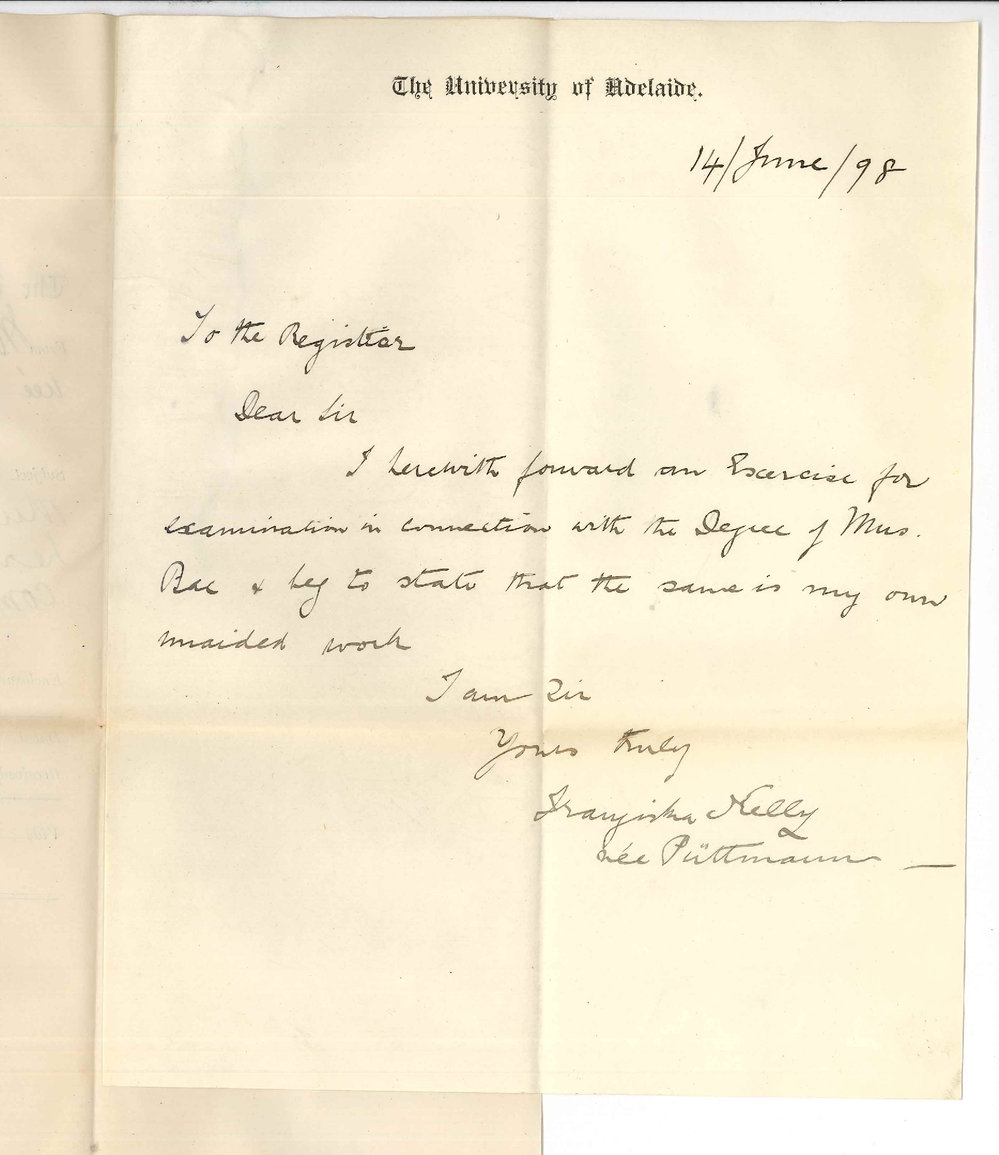 The University of Adelaide.
14/June/98
To the Registrar
Dear Sir
I herewith forward an Exercise for
examination in connection with the Degree of Mus.
Bac & beg to state that the same is my own
unaided work
I am Sir
Yours truly
Franziska Kelly
née Püttmann